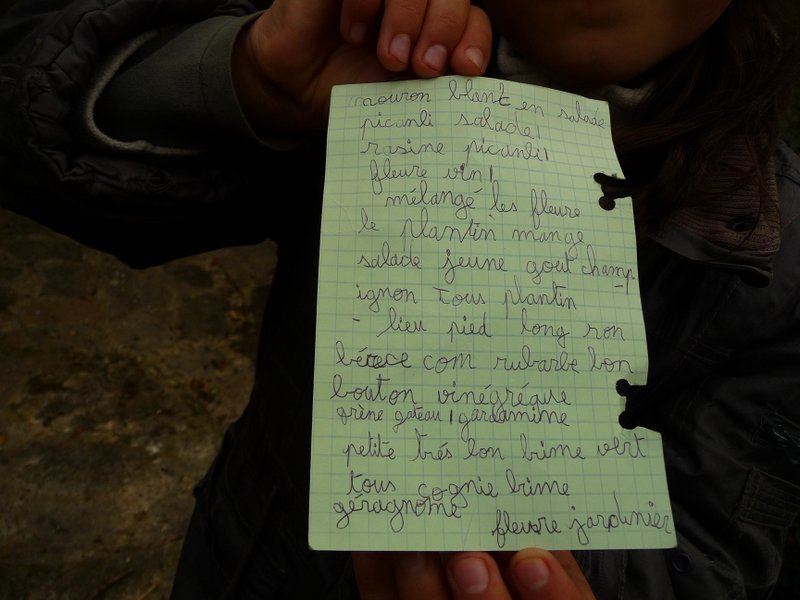 mouron blant en salade
picanli salade
rasine picanli
fleure vin
mélangé les fleure
le plantin mange
salade jeune gout champ
ignon tous plantin
- lieu pied long ron
com rubarbe bon
bouton vinégréque
grène gateau gardamime
petite trés bon brime vert
tous cognie brime
géragnome
fleure jardinier